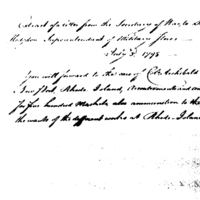 Extract of a letter from the Secretary of War to
Superintendent of Military Stores
July 5. 1798
You will forward to the care of Colo. Archibald
New Port, Rhode Island, and one
for four hundred Muskets also ammunition to
the wants of the different works at Rhode Island